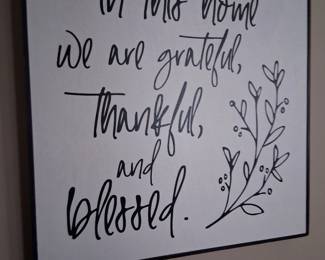 In this home
we are grateful,
thankful,
and
blessed.